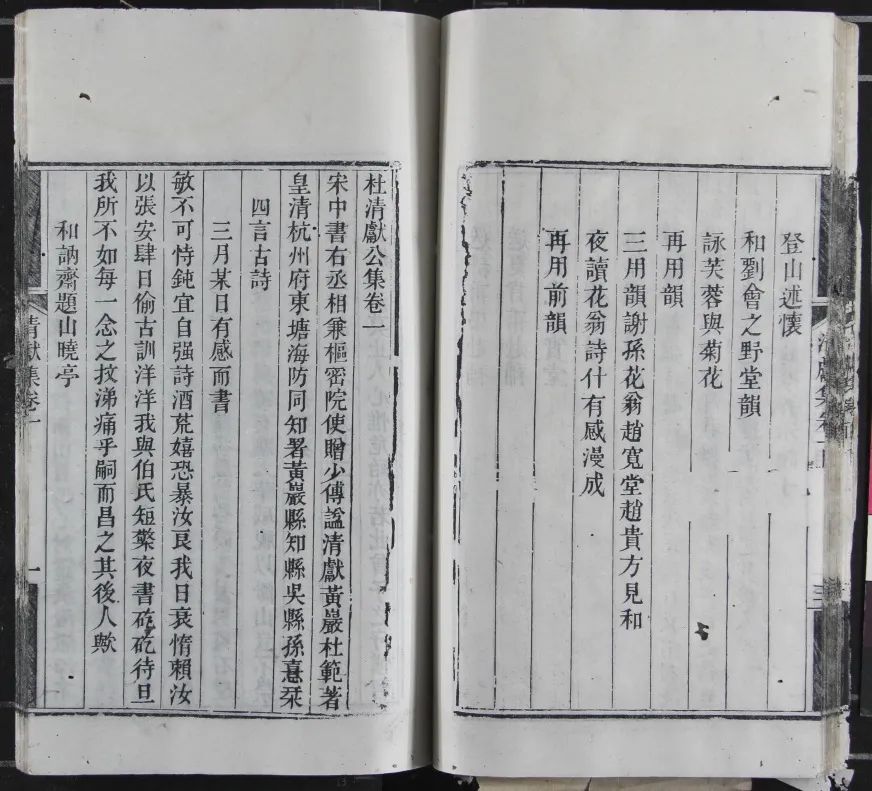 登山述懷
和劉會之野堂韻
詠芙蓉與菊花
再用韻
三用韻謝孫花翁趙寬堂趙貴方見和
夜讀花翁詩什有感漫成
再用前韻
杜清獻公集卷一
宋中書右丞相兼樞密院使贈少傅諡清獻黃巖杜範著
皇清杭州府東塘海防同知署黃巖縣知縣吳縣孫憙栞
四言古詩
三月某日有感而書
敏不可恃鈍宜自强詩酒荒嬉恐暴汝良我日衰惰賴汝
以張安肆日偷古訓洋洋我與伯氏短檠夜書矻矻待旦
我所不如每一念之抆涕痛乎嗣而昌之其後人歟
和訥齋題山曉亭
清獻集卷一
一